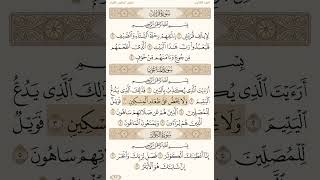 سُورَةُ قُرَيْشٍ
بِسْمِ اللَّهِ الرَّحْمَٰنِ الرَّحِيمِ
لِإِيلَافِ قُرَيْشٍ ۝١ إِۦلَافِهِمْ رِحْلَةَ الشِّتَاءِ وَالصَّيْفِ ۝٢
فَلْيَعْبُدُوا رَبَّ هَٰذَا الْبَيْتِ ۝٣ الَّذِي أَطْعَمَهُم
مِّن جُوعٍ وَءَامَنَهُم مِّنْ خَوْفٍ ۝٤
سُورَةُ المَاعُونِ
بِسْمِ اللَّهِ الرَّحْمَٰنِ الرَّحِيمِ
أَرَءَيْتَ الَّذِي يُكَذِّبُ بِالدِّينِ ۝١ فَذَٰلِكَ الَّذِي يَدُعُّ
الْيَتِيمَ ۝٢ وَلَا يَحُضُّ عَلَىٰ طَعَامِ الْمِسْكِينِ ۝٣ فَوَيْلٌ
لِّلْمُصَلِّينَ ۝٤ الَّذِينَ هُمْ عَن صَلَاتِهِمْ سَاهُونَ ۝٥
الَّذِينَ هُمْ يُرَاءُونَ ۝٦ وَيَمْنَعُونَ الْمَاعُونَ ۝٧
سُورَةُ الكَوْثَرِ
بِسْمِ اللَّهِ الرَّحْمَٰنِ الرَّحِيمِ
إِنَّا أَعْطَيْنَاكَ الْكَوْثَرَ ۝١ فَصَلِّ لِرَبِّكَ وَانْحَرْ ۝٢
إِنَّ شَانِئَكَ هُوَ الْأَبْتَرُ ۝٣